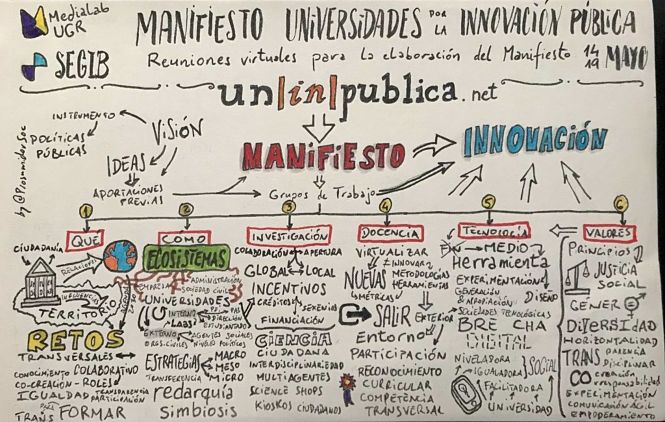 MediaLab
UGR
SEGIB
MANIFIESTO UNIVERSIDADES POR LA INNOVACIÓN PÚBLICA
Reuniones virtuales para la elaboración del Manifiesto 14 19 MAYO
un[in]publica.net
by @Prosumidorsoc
INSTRUMENTO
POLÍTICAS
PÚBLICAS
VISIÓN
IDEAS
APORTACIONES
PREVIAS
MANIFIESTO
INNOVACIÓN
Grupos de Trabajo
1
QUÉ
CIUDADANÍA
RELACIONAL
TERRITORIO
RETOS
TRANSVERSALES
CONOCIMIENTO COLABORATIVO
CO-CREACIÓN - ROLES
IGUALDAD TRANSPARENCIA
PARTICIPACIÓN
PARA
TRANS FORMAR
2
COMO
ECOSISTEMAS
EMPRESA ADMINISTRACIÓN
SOCIEDAD CIVIL
UNIVERSIDADES
INTERNO
LABS
DIRECCIÓN
ESTUDIANTADO
EXTERNO AGEN. SOCIALES
ORGS.CIVILES NIVEL POLÍTICO
ESTRATEGIAS MACRO
MESO
TRANSFERENCIA MICRO
redarquía
Simbiosis
3
INVESTIGACIÓN
COLABORACIÓN APERTURA
GLOBAL LOCAL
INCENTIVOS
CRÉDITOS SEXENIOS
FINANCIACIÓN
CIENCIA
CIUDADANA
INTERDISCIPLINARIEDAD
MULTIAGENTES
SCIENCE SHOPS
KIOSKOS CIUDADANOS
4
DOCENCIA
VIRTUALIZAR
INNOVAR
NUEVAS METODOLOGÍAS
HERRAMIENTAS
MÉTRICAS
SALIR EXTERIOR
Entorno
PARTICIPACIÓN
RECONOCIMIENTO
CURRICULAR
COMPETENCIA
TRANSVERSAL
5
TECNOLOGÍA
FIN MEDIO
Herramienta
EXPERIMENTACIÓN
GENERACIÓN DISEÑO
& APROPIACIÓN
SOCIEDADES TECNOLÓGICAS
BRECHA
DIGITAL
NIVELADORA
IGUALADORA SOCIAL
FACILITADORA
UNIVERSIDAD
6
VALORES
PRINCIPIOS
JUSTICIA
SOCIAL
GÉNERO
DIVERSIDAD
HORIZONTALIDAD
TRANS PARENCIA
DISCIPLINAR
CO CREACIÓN
responsabilidad
EXPERIMENTACIÓN
COMUNICACIÓN ÁGIL
EMPODERAMIENTO